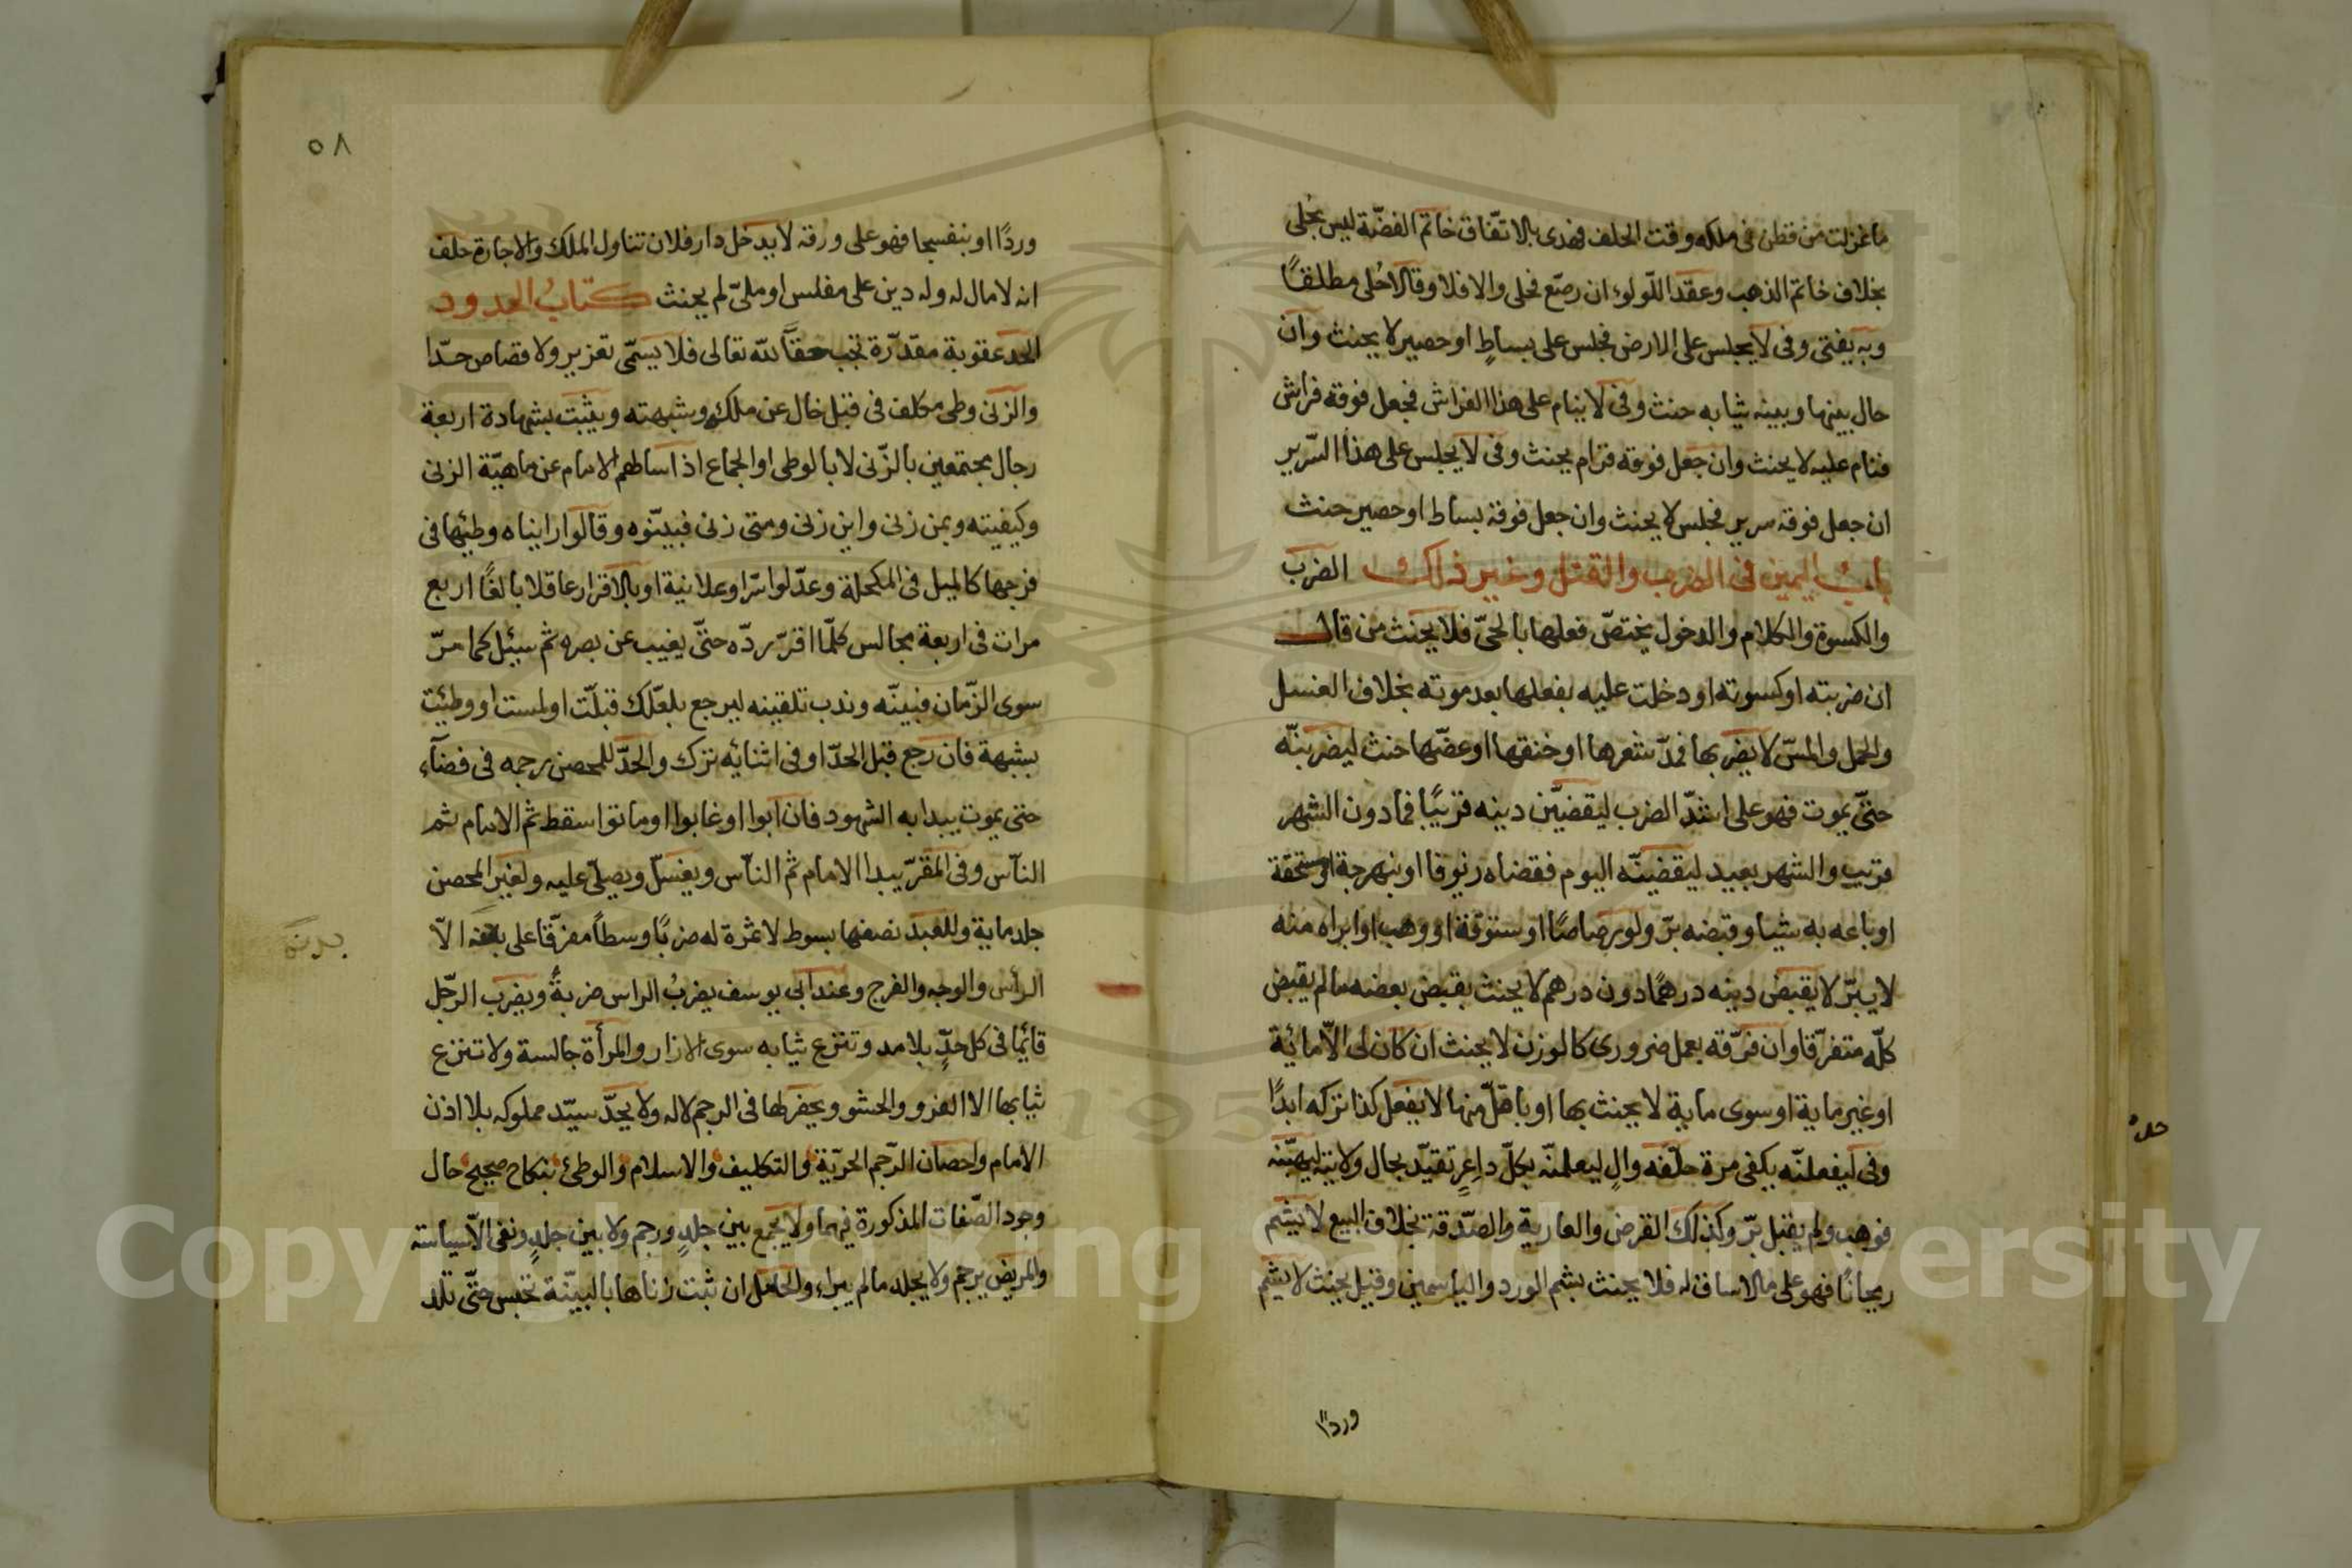 ما غزلت من قطن في ملكه وقت الحلف فهدى بالاتفاق خاتم الفضّة ليس بحلى
بخلاف خاتم الذهب وعقد اللّولوء ان رصّع فحلى والا فلا وقالا حُلى مطلقًا
وبه يفتى وفى لا يجلس على الارض فجلس على بساطٍ او حصير لا يحنث وان
حال بينها وبينه ثيابه حنث وفى لا ينام على هذا الفراش فجعل فوقه فراش
فنام عليه لا يحنث وان جعل فوقه قرام يحنث وفى لا يجلس على هذا السّرير
ان جعل فوقه سرير فجلس لا يحنث وان جعل فوقه بساط او حصير حنث
باب اليمين فى الضرب والقتل وغير ذلك الضرب
والكسوة والكلام والدخول يختصّ فعلها بالحىّ فلا يحنث من قال
ان ضربته او كسوته او دخلت عليه بفعلها بعد موته بخلاف الغسل
والحمل والمسّ لا يضربها فمدّ شعرها او خنقها او عضّها حنث ليضربنّه
حتّى يموت فهو على اشدّ الضرب ليقضيّن دينه قريبًا فمادون الشهر
قريب والشهر بعيد ليقضينّه اليوم فقضاه زيوفا او نبهرجة او مستحقة
او باعه به شيا وقبضه برّ ولو رصاصًا او ستوقة او وهب او ابراه منه
لا يبرّ لا يقبض دينه درهمًا دون درهم لا يحنث بقبض بعضه ما لم يقبض
كلّه متفرّقا وان فرّقه بعمل ضرورى كالوزن لا يحنث ان كان لى الاّ مائة
او غير ماية او سوى ماية لا يحنث بها او باقلّ منها لا يفعل كذا تركه ابدًا
وفى ليفعلنّه يكفى مرة حلّفه والٍ ليعلمنّه بكلّ داعرٍ تقيّد بحال ولايته ليهبّنه
فوهب ولم يقبل برّ وكذلك القرض والعارية والصّدقة بخلاف البيع لا يشم
ريحانًا فهو على مالا ساق له فلا يحنث بشم الورد والياسمين وقيل يحنث لا يشم
وردًا
٥٨
وردًا او بنفسجا فهو على ورقه لا يدخل دار فلان تناول الملك والاجارة حلف
انه لا مال له وله دين على مفلس او ملىّ لم يحنث كتاب الحدود
الحد عقوبة مقدّرة تجب حقًّا لله تعالى فلا يسمّى تعزير ولا قصاص حدّا
والزنى وطى مكلف فى قبل خال عن ملك وشبهته ويثبت بشهادة اربعة
رجال مجتمعين بالزّنى لا بالوطى او الجماع اذا سالهم الامام عن ماهيّة الزنى
وكيفيته وبمن زنى واين زنى ومتى زنى فبيّنوه وقالوا رايناه وطئها فى
فرجها كالميل فى المكحلة وعدّلوا سرّا وعلانية او بالاقرار عاقلا بالغًا اربع
مرات فى اربعة مجالس كلّما اقرّ ردّه حتّى يغيب عن بصره ثم سئل كما مرّ
سوى الزّمان فبينّه وندب تلقينه ليرجع بلعلّك قبلّت او لمست او وطئت
بشبهة فان رجع قبل الحدّ او فى اثنائه ترك والحدّ للمحصن رجمه فى فضآء
حتى يموت يبدا به الشهود فان ابوا او غابوا او ماتوا سقط ثم الامام ثم
النآس وفى المقرّ يبدا الامام ثم النآس ويغسّل ويصلّى عليه ولغير المحصن
جلد ماية وللعبد نصفها بسوط لا ثمرة له ضربًا وسطًا مفرّقا على بدنه الاّ
بدنه
الرأس والوجه والفرج وعند ابى يوسف يضربُ الراس ضربةً ويضرب الرّجل
قائمًا فى كل حدٍّ بلا مد وتنزع ثيابه سوى الازار والمرأة جالسة ولا تنزع
ثيابها الا الفرو والحشو ويحفر لها فى الرجم لا له ولا يحدّ سيّد مملوكه بلا اذن
الامام واحصان الرّجم الحريّة والتكليف والاسلام والوطئ بنكاح صحيح حال
وجود الصّفات المذكورة فيهما ولا يجمع بين جلدٍ ورجم ولا بين جلدٍ ونفى الاّ سياسة
والمريض يرجم ولا يجلد مالم يبراء والحامل ان ثبت زناها بالبينّة تحبس حتّى تلد
Copyright © King Saud University
195